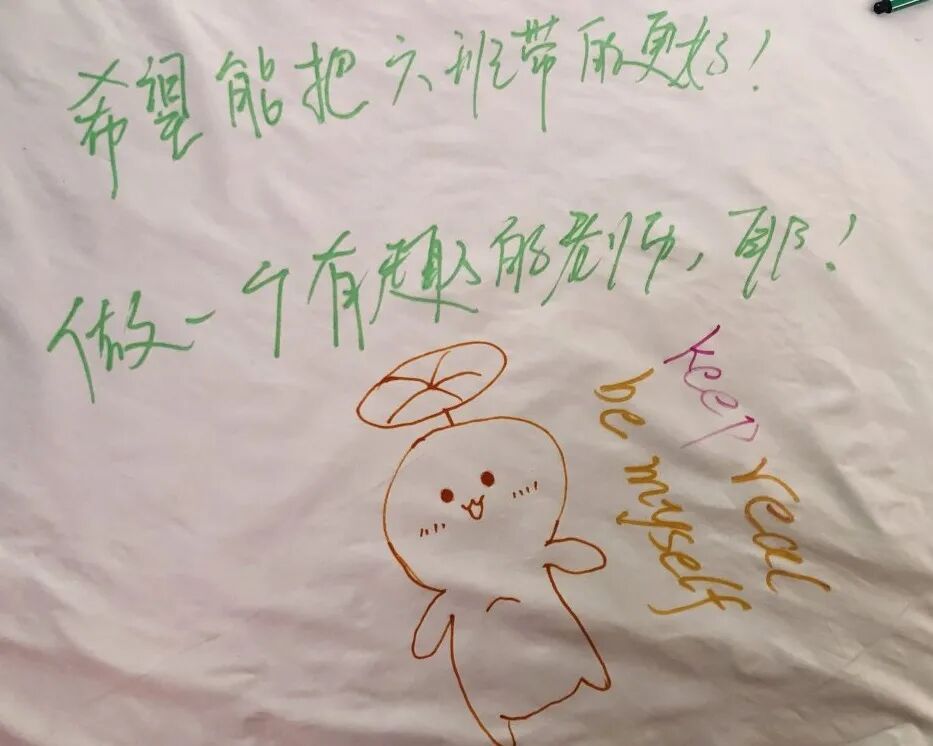 希望能把六班带的更好!
做一个有趣的老师,耶!
keep real
be myself